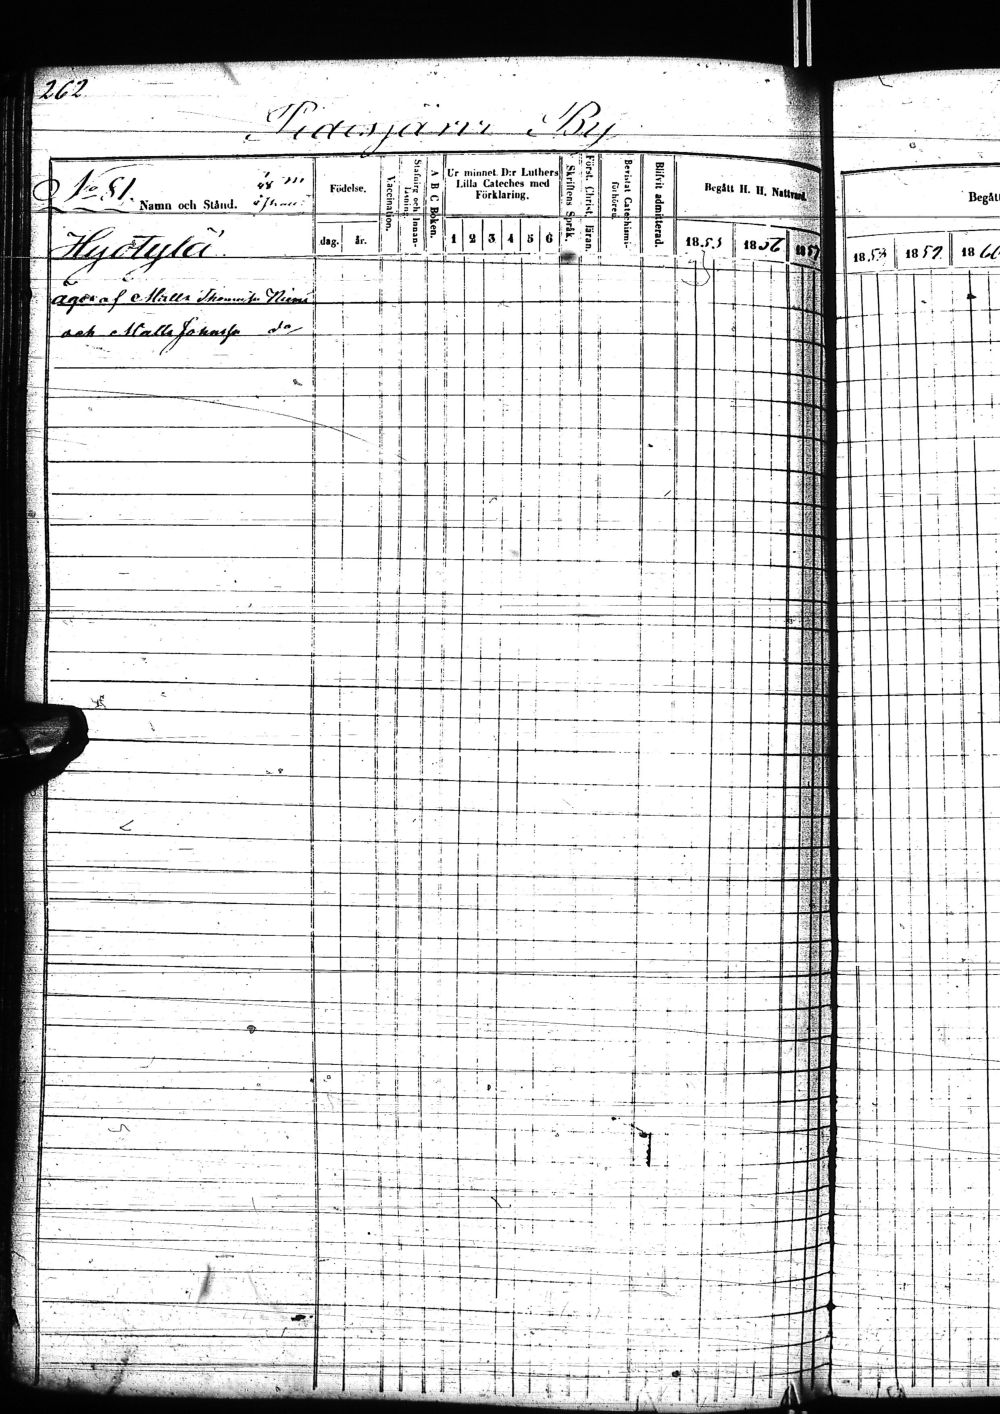 262
By
No 51.
Namn och Stånd.
Födelse.
dag. år.
Vaccination.
Stafning och Innan-Läsning.
A B C Boken.
Ur minnet D:r Luthers
Lilla Cateches med
Förklaring.
1 2 3 4 5 6
Skriftens Språk.
Först. Christ. läran.
Bevistat Catechismi-förhören.
Blifvit admitterad.
Begått H. H. Nattvard.
1856 1857
Begått
1858 1859 1860
Hyötylä
äges af Matts
och Matts Johansso do